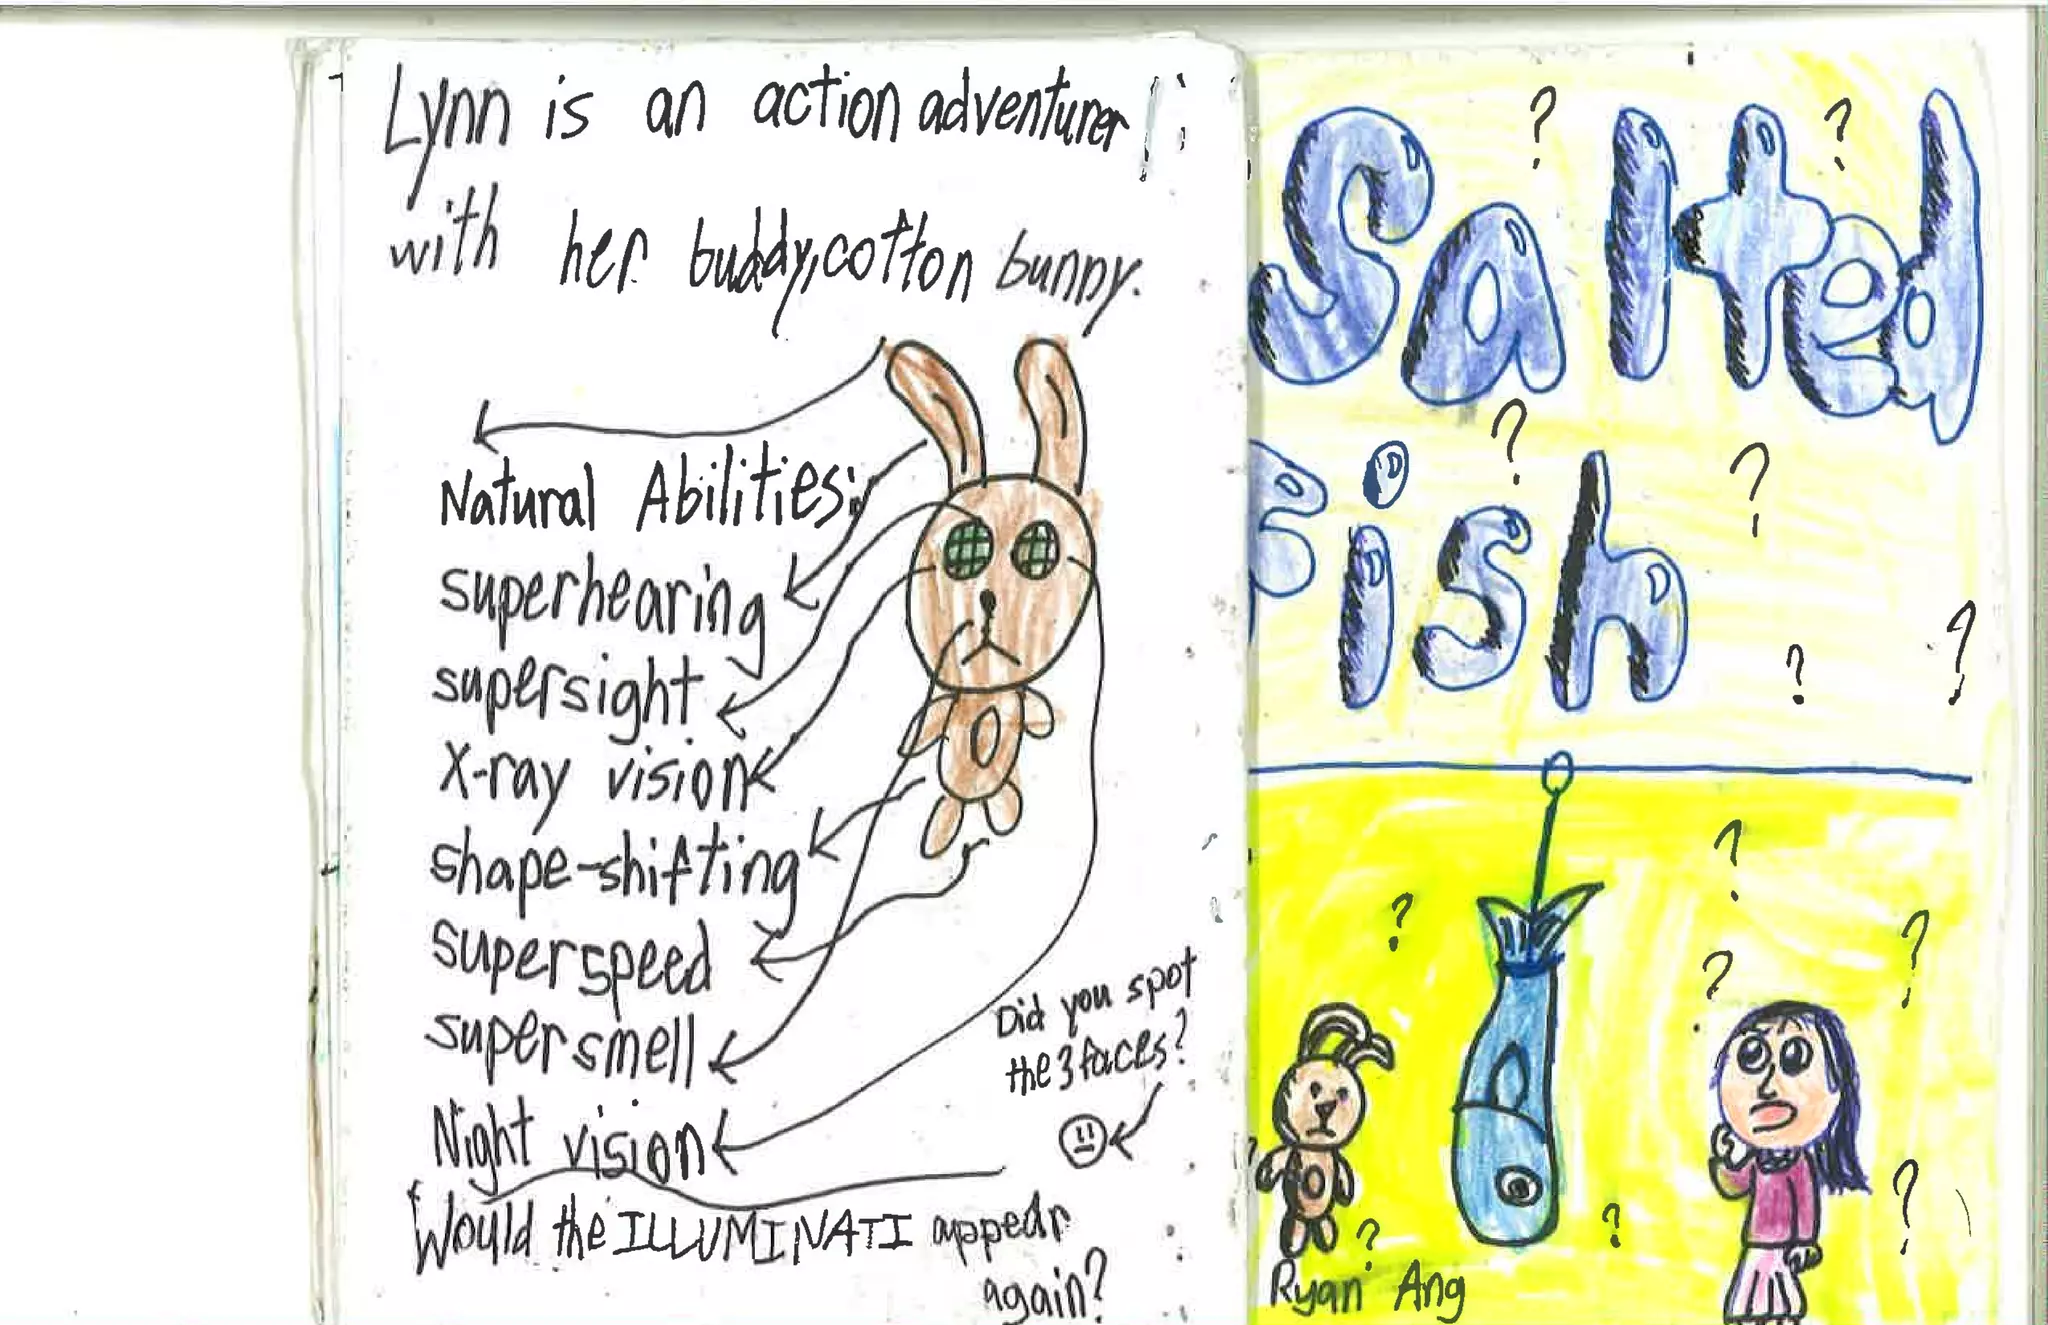 Lynn is an action adventurer
with her buddy, cotton bunny.
Natural Abilities:
superhearing
supersight
X-ray vision
shape-shifting
superspeed
supersmell
Night vision
Did you spot
the 3 faces?
Would the ILLUMINATI appear
again?
Salted
Fish
? ? ? ? ? ? ? ? ? ? ? ? ?
Ryan Ang